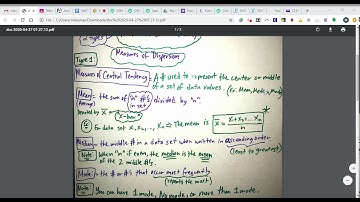 doc 2020-04-27 07:27:12.pdf
1 / 3
2 types
Measures of Dispersion
Type 1:
Measures of Central Tendency = A # used to represent the center or middle
of a set of data values. (Ex: Mean, Median, Mode)
Mean = the sum of "n" #'s divided by "n".
(Average) in set
Denoted by x̄ = "x-bar"
For data set x₁, x₂, ..., xₙ ⇒ The mean is x̄ = x₁+x₂...xₙ / n *
Median = the middle # in a data set when written in ascending order
(least to greatest)
Note: When "n" is even, the median is the mean
of the 2 middle #'s.
Mode = the # or #'s that occur most frequently
(repeats the most)
Note: You can have 1 mode, No mode, or more than 1 mode.